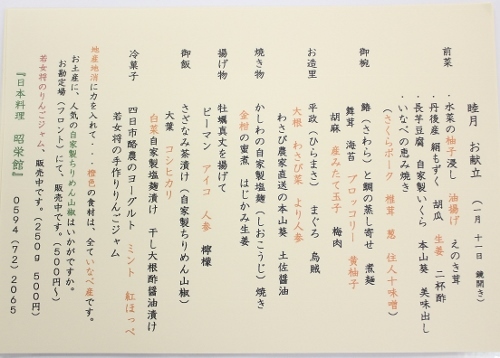 睦月 お献立 (一月 十一日 鏡開き)
前菜 ・水菜の柚子浸し 油揚げ えのき茸
・丹後産 絹もずく 胡瓜 生姜 二杯酢
・長芋豆腐 自家製いくら 本山葵 美味出し
・いなべの恵み焼き
(さくらポーク 椎茸 葱 住人十味噌)
御椀 鰆(さわら)と鯛の蒸し寄せ 煮麺
舞茸 海苔 ブロッコリー 黄柚子
胡麻 産みたて玉子 梅肉
お造里 平政(ひらまさ) まぐろ 烏賊
大根 わさび菜 より人参
わさび農家直送の本山葵 土佐醤油
焼き物 かしわの自家製塩麹(しおこうじ)焼き
金柑の蜜煮 はじかみ生姜
揚げ物 牡蠣真丈を揚げて
ピーマン アイコ 人参 檸檬
御飯 さざなみ茶漬け(自家製ちりめん山椒)
大葉 コシヒカリ
白菜自家製塩麹漬け 干し大根酢醤油漬け
冷菓子 四日市酪農のヨーグルト ミント 紅ほっぺ
若女将の手作りりんごジャム
地産地消に力を入れて・・ 橙色の食材は、全ていなべ産です。
お土産に、人気の自家製ちりめん山椒はいかがですか。
お勘定場(フロント)にて、販売中です。(500円~)
若女将のりんごジャム、販売中です。(250g 500円)
『日本料理 昭栄館』 0594(72)2065